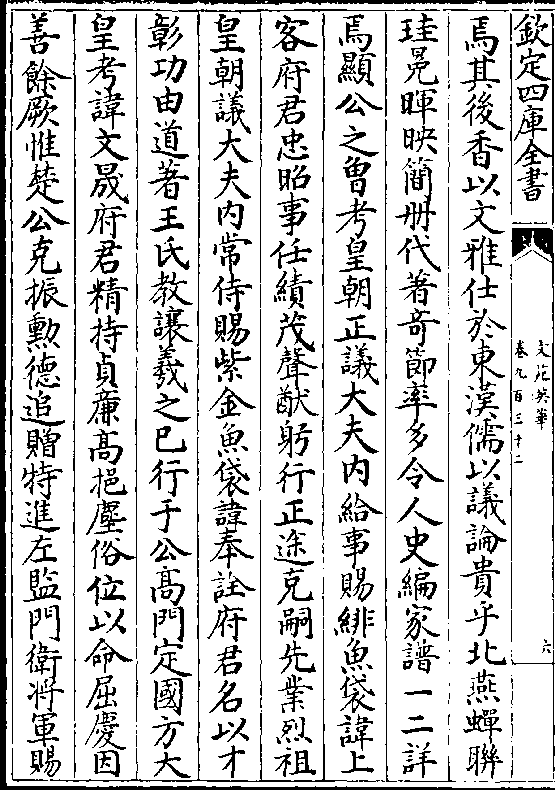 欽定四庫全書
文苑英華
卷九百三十二
六
焉其後香以文雅仕於東漢儒以議論貴乎北燕蟬聯
珪冕暉映簡册代著奇節率多令人史編家譜一二詳
焉顯公之曾考皇朝正議大夫内給事賜緋魚袋諱上
客府君忠昭事任績茂聲猷躬行正途克嗣先業烈祖
皇朝議大夫内常侍賜紫金魚袋諱奉詮府君名以才
彰功由道著王氏教讓羲之已行于公髙門定國方大
皇考諱文晟府君精持貞廉髙挹塵俗位以命屈慶因
善餘厥惟楚公克振勲德追贈特進左監門衛將軍賜